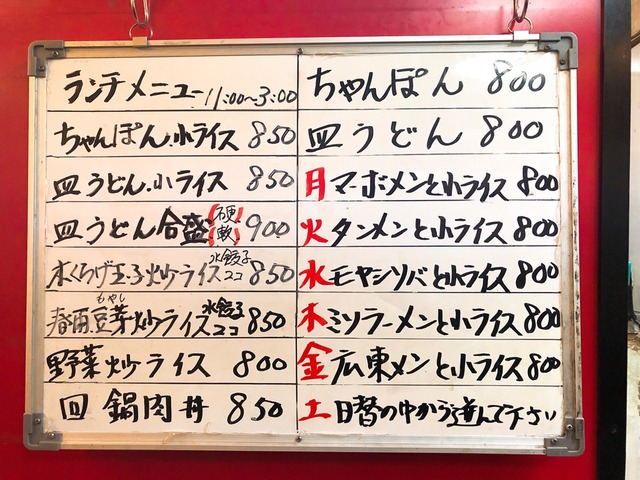 ランチメニュー 11:00～3:00
ちゃんぽん.小ライス 850
皿うどん.小ライス 850
皿うどん合盛(硬軟) 900
木くらげ玉子炒ライス 水餃子2コ 850
春雨豆芽もやし炒ライス 水餃子2コ 850
野菜炒ライス 800
回鍋肉丼 850
ちゃんぽん 800
皿うどん 800
月 マーボメンと小ライス 800
火 タンメンと小ライス 800
水 モヤシソバと小ライス 800
木 ミソラーメンと小ライス 800
金 広東メンと小ライス 800
土 日替の中から選んで下さい